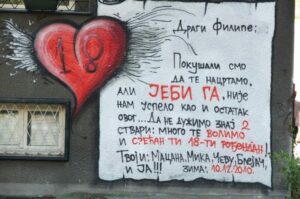 18
Драги Филипе:
Покушали смо
да те нацртамо,
али ЈЕБИ ГА, није
нам успело као и остатак
овог....Да не дужимо знај 2
ствари: много те волимо
и срећан ти 18-ти рођендан!
Твоји: Мацана, Мика, Чеву, Брејач,
и ЈА!!! Зима: 10.12.2010.